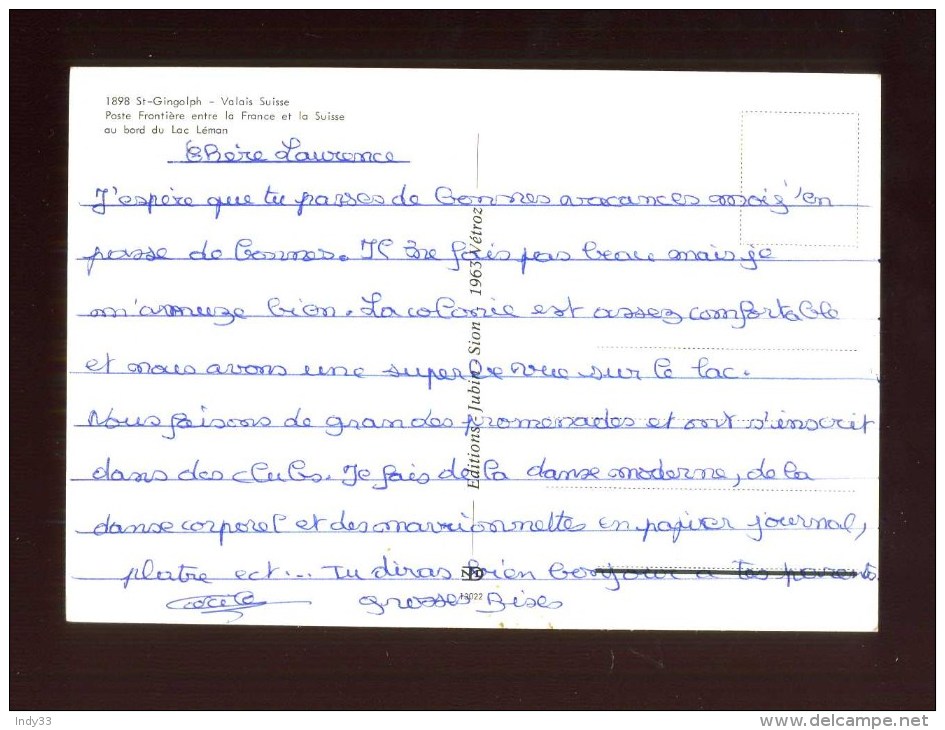 1898 St-Gingolph - Valais Suisse
Poste Frontière entre la France et la Suisse
au bord du Lac Léman
Chère Laurence
J'espère que tu passes de bonnes vacances moi j'en
passe de bonnes. Il ne fais pas beau mais je
m'amuze bien. La colonie est assez comfortable
et nous avons une superbe vue sur le lac.
Nous faisons de grandes promenades et ont s'inscrit
dans des clubs. Je fais de la danse moderne, de la
danse corporel et des marrionnettes en papier journal,
platre ect... Tu diras bien bonjour a tes parents.
grosses Bises
Editions Jubin Sion 1963 Vétroz
13022
Indy33
www.delcampe.net